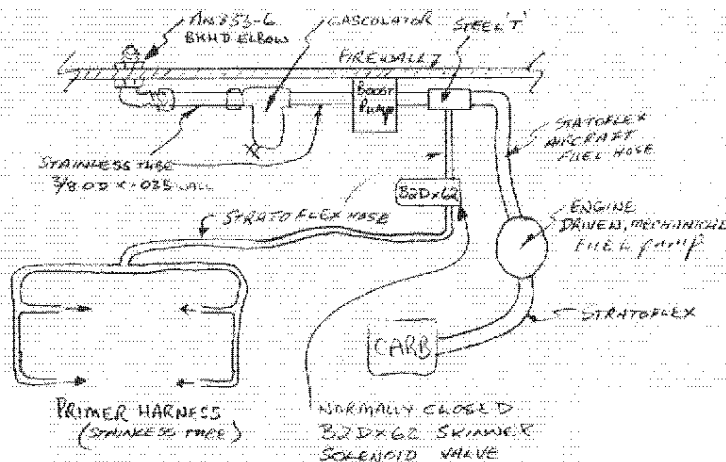 AN 833-6
BKHD ELBOW
GASCOLATOR
STEEL 'T'
FIREWALL
BOOST
PUMP
STATOFLEX
AIRCRAFT
FUEL HOSE
STAINLESS TUBE
3/8 OD X .035 WALL
B2DX62
STRATOFLEX HOSE
ENGINE
DRIVEN, MECHANICAL
FUEL PUMP
STRATOFLEX
CARB
PRIMER HARNESS
(STAINLESS TUBE)
NORMALLY CLOSED
B2DX62 SKINNER
SOLENOID VALVE